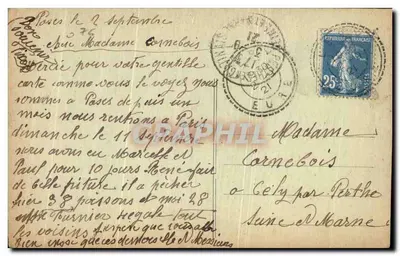 Poses le 2 septembre
Bon
bonjour
Chère Madame Cornebois
Merci pour votre gentille
carte comme vous le voyez nous
sommes a Poses depuis un
mois nous rentrons a Paris
dimanche le 11 septembre
nous avons eu Marcelle et
Paul pour 10 jours René fait
de belle friture il a pecher
hier 38 poissons et moi 28
Fournier régale tout
les voisins
rien
EURE
REPUBLIQUE FRANÇAISE
25
Madame
Cornebois
a Cely par Perthe
Seine et Marne